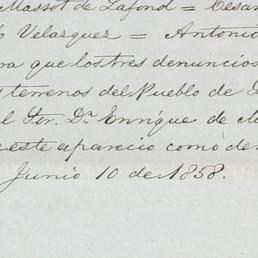 Massot de Lafond = Cesar
Velazquez = Antonio
ra que los tres denuncios
terrenos del Pueblo de
el Sor. Dn. Enrique de
este aparecio como de
Junio 10 de 1858.